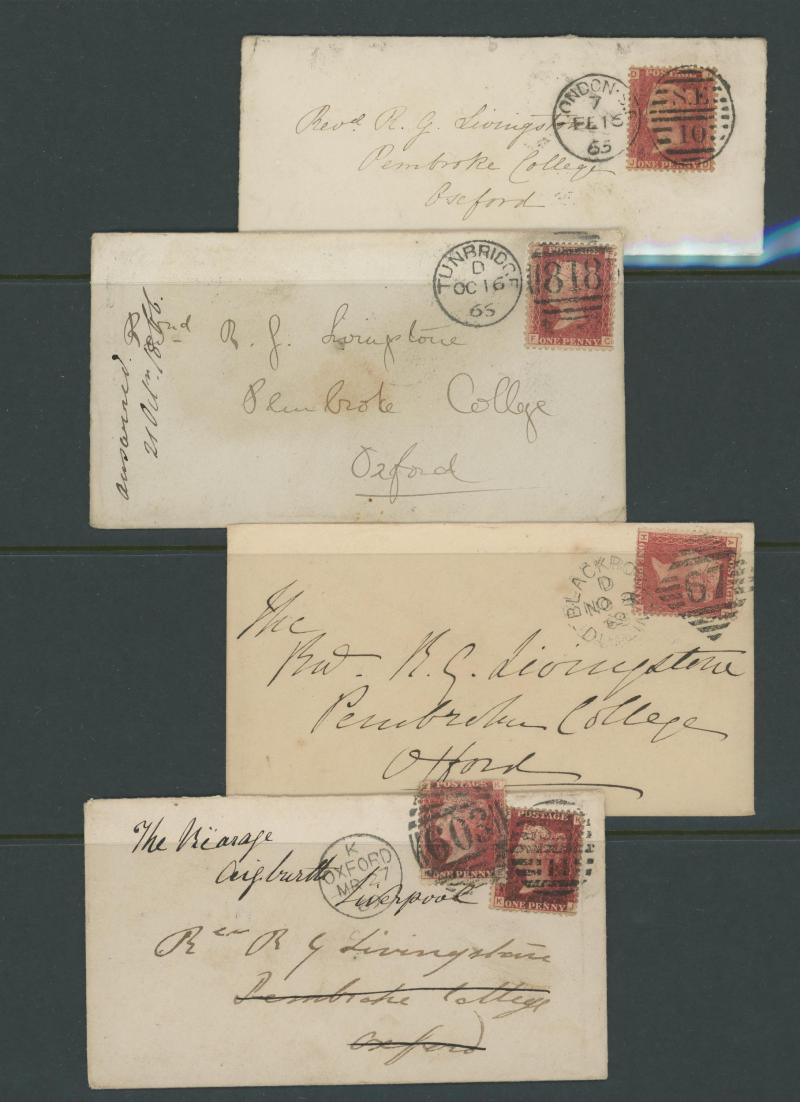 Revd R. G. Livingstone
Pembroke College
Oxford
LONDON · S.E
7
FE 15
65
POSTAGE
S.E
10
ONE PENNY
answered. P
21 Octr. 1865.
R. G. Livingstone
Pembroke College
Oxford
TUNBRIDGE
D
OC 16
65
818
F ONE PENNY G
The
Revd. R. G. Livingstone
Pembroke College
Oxford
BLACKRO
D
NO
DUBLIN
67
The Vicarage
Aigburth
Liverpool
Rev R G Livingstone
Pembroke College
Oxford
K
OXFORD
MR 27
POSTAGE
603
ONE PENNY
POSTAGE
K ONE PENNY J